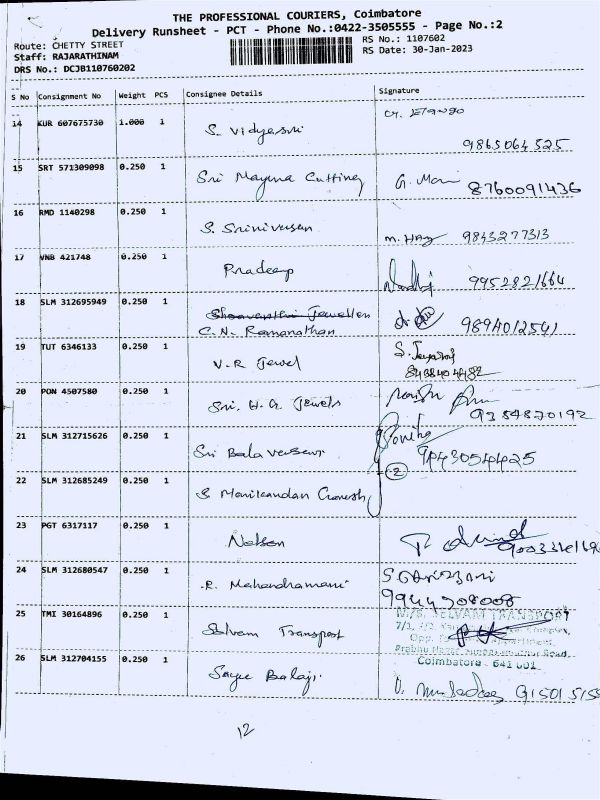 THE PROFESSIONAL COURIERS, Coimbatore
Delivery Runsheet - PCT - Phone No.:0422-3505555 - Page No.:2
Route: CHETTY STREET RS No.: 1107602
Staff: RAJARATHINAM RS Date: 30-Jan-2023
DRS No.: DCJB110760202
S No Consignment No Weight PCS Consignee Details Signature
14 KUR 607675730 1.000 1 S. Vidyasri 9865064525
15 SRT 571309098 0.250 1 Sri Mayuna Cutting G. Mani 8760091436
16 RMD 1140298 0.250 1 S. Srinivasan 9843277313
17 VNB 421748 0.250 1 Pradeep 9952821664
18 SLM 312695949 0.250 1 Jewellers
C.N. Ramanathan 9894012541
19 TUT 6346133 0.250 1 V.R Jewel S. Jayaraj
20 PON 4507580 0.250 1 Sri. H.G Jewels 9384870192
21 SLM 312715626 0.250 1 Sri 9443054425
2
22 SLM 312685249 0.250 1 S Manikandan Ganesh
23 PGT 6317117 0.250 1 Nelson
24 SLM 312680547 0.250 1 R. Mahendramani
9944908008
25 TMI 30164896 0.250 1 Selvam Transport M/S. SELVAM TRANSPORT
Coimbatore - 641 001
26 SLM 312704155 0.250 1 Balaji 915015155
12